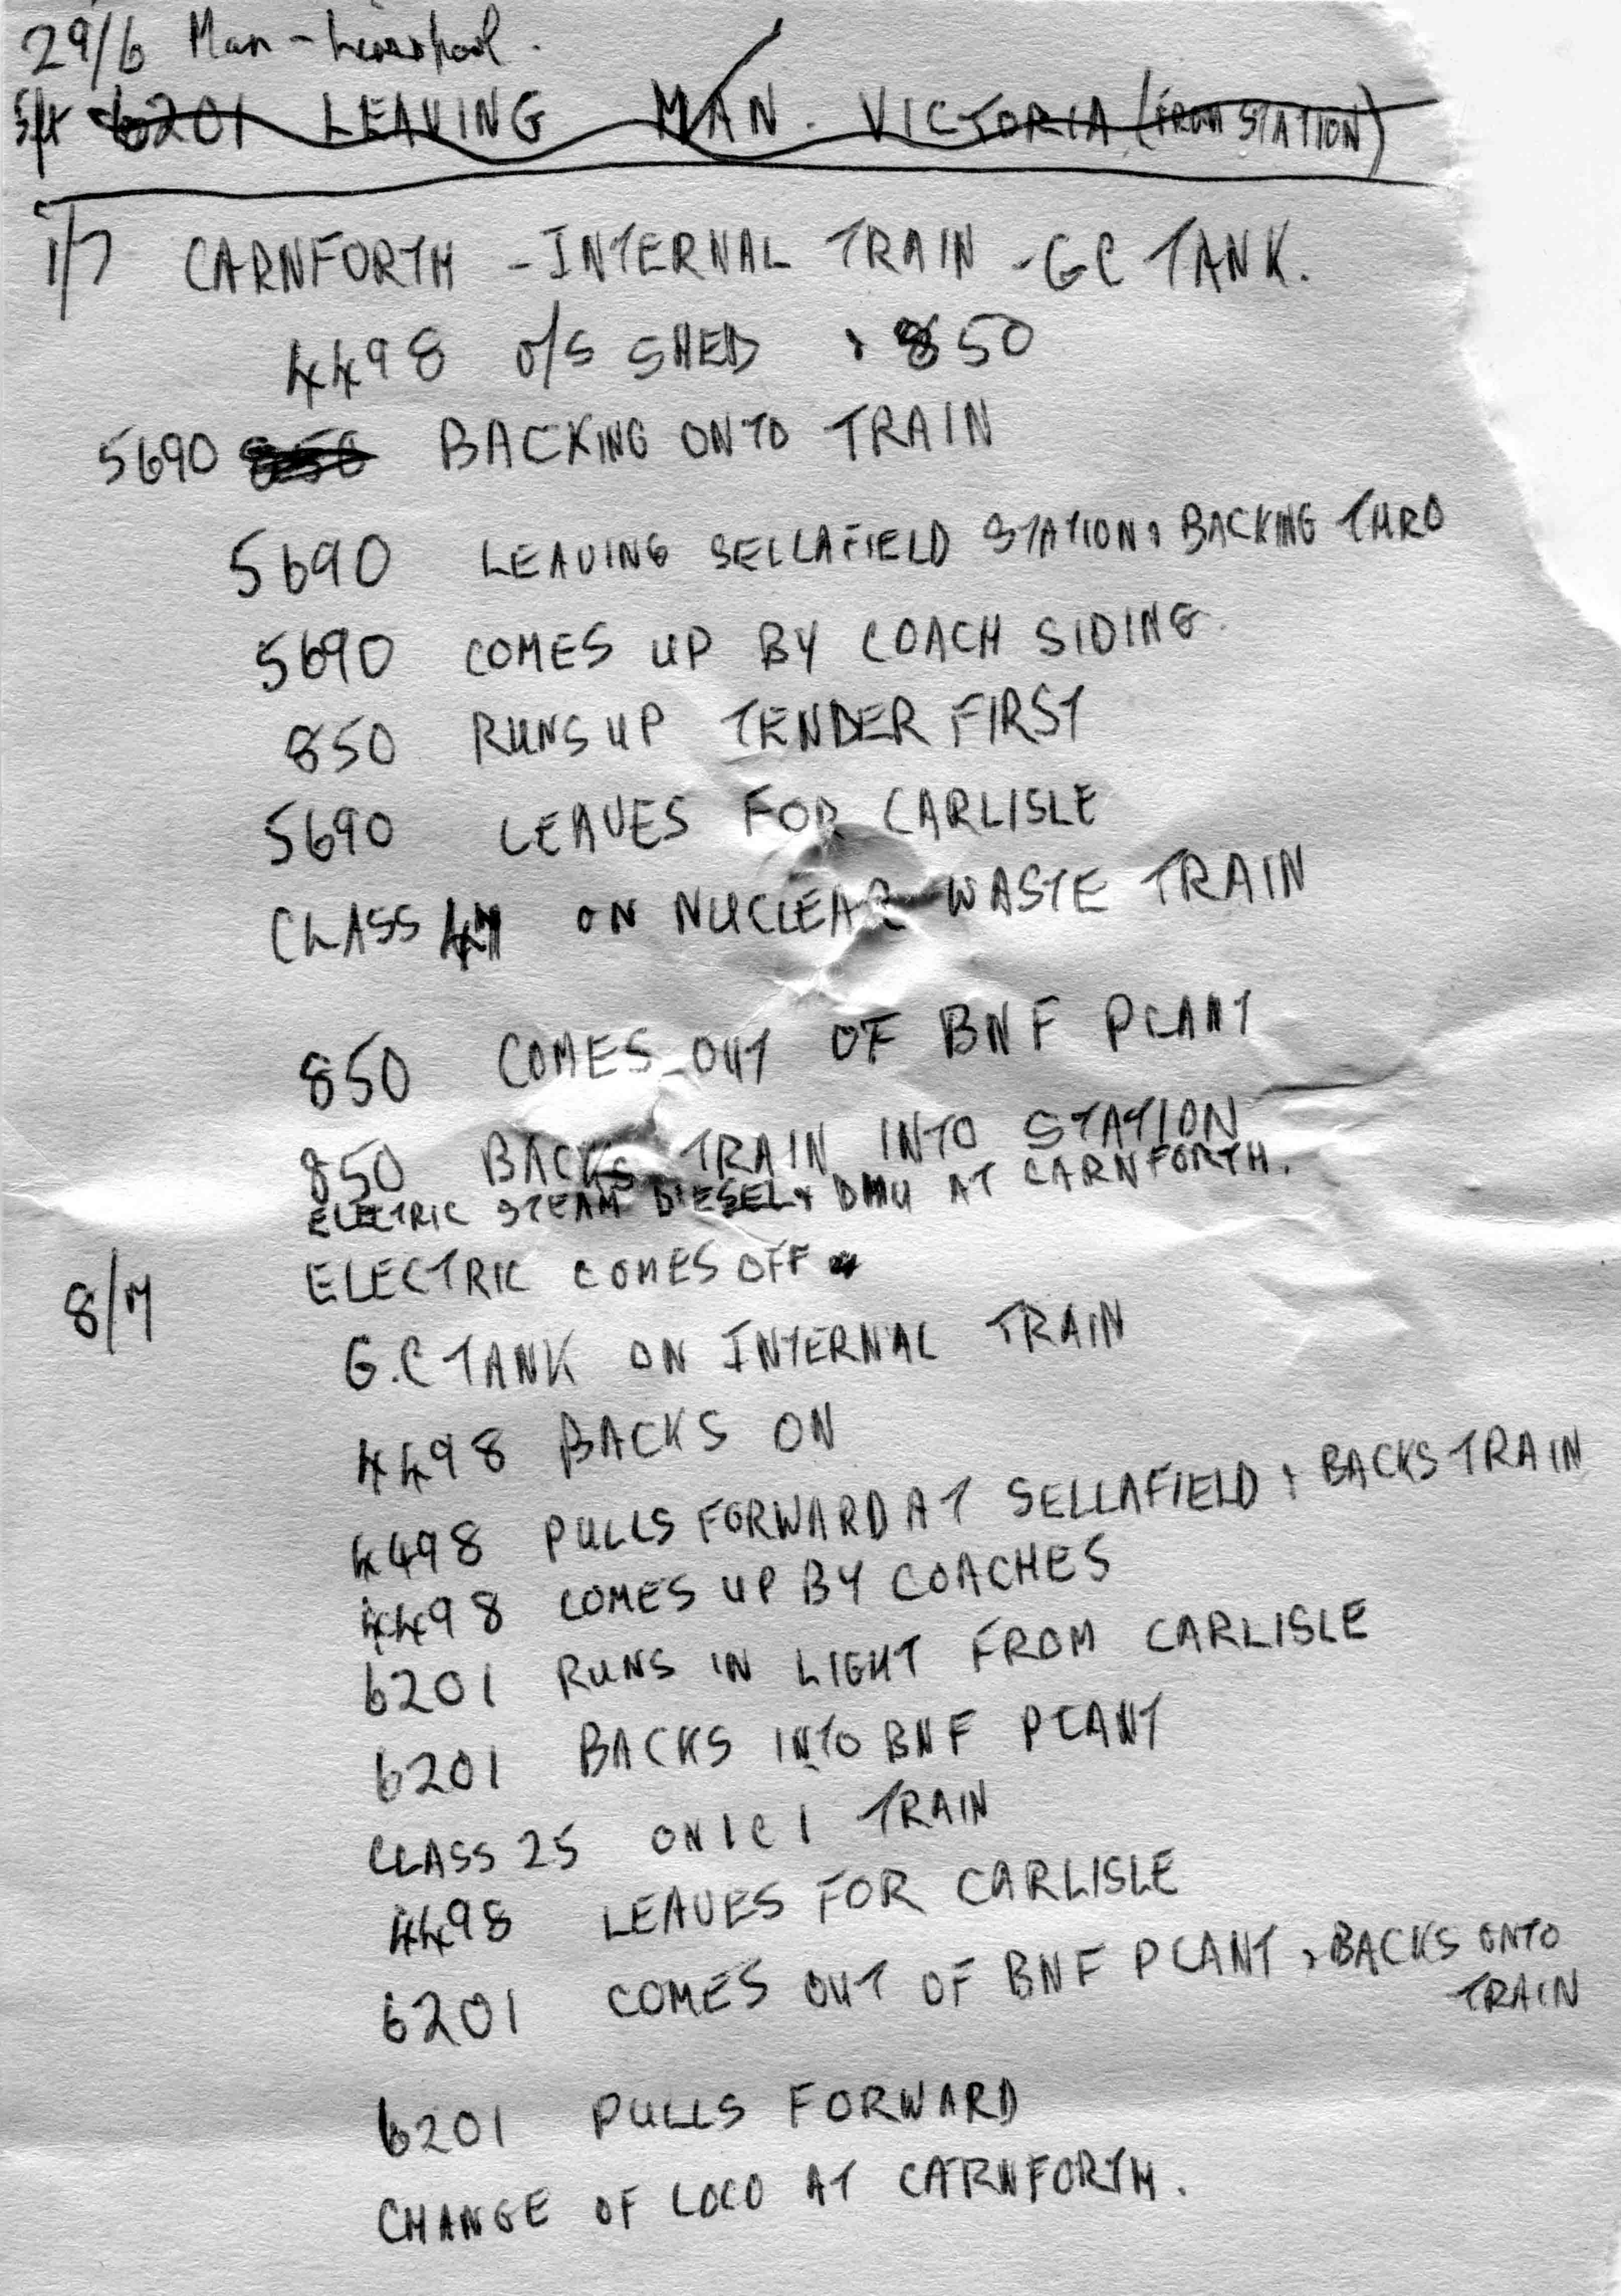 29/6 Man - Liverpool.
6201 LEAVING MAN. VICTORIA (FROM STATION)
1/7 CARNFORTH - INTERNAL TRAIN - GC TANK.
4498 O/S SHED + 850
5690 850 BACKING ONTO TRAIN
5690 LEAVING SELLAFIELD STATION + BACKING THRO
5690 COMES UP BY COACH SIDING.
850 RUNS UP TENDER FIRST
5690 LEAVES FOR CARLISLE
CLASS 47 ON NUCLEAR WASTE TRAIN
850 COMES OUT OF BNF PLANT
850 BACKS TRAIN INTO STATION
ELECTRIC STEAM DIESEL + DMU AT CARNFORTH.
8/7 ELECTRIC COMES OFF
G.C TANK ON INTERNAL TRAIN
4498 BACKS ON
4498 PULLS FORWARD AT SELLAFIELD + BACKS TRAIN
4498 COMES UP BY COACHES
6201 RUNS IN LIGHT FROM CARLISLE
6201 BACKS INTO BNF PLANT
CLASS 25 ON ICI TRAIN
4498 LEAVES FOR CARLISLE
6201 COMES OUT OF BNF PLANT + BACKS ONTO
TRAIN
6201 PULLS FORWARD
CHANGE OF LOCO AT CARNFORTH.